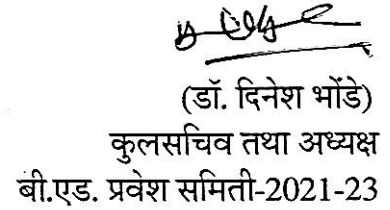 (डॉ. दिनेश भोंडे)
कुलसचिव तथा अध्यक्ष
बी.एड. प्रवेश समिति-2021-23